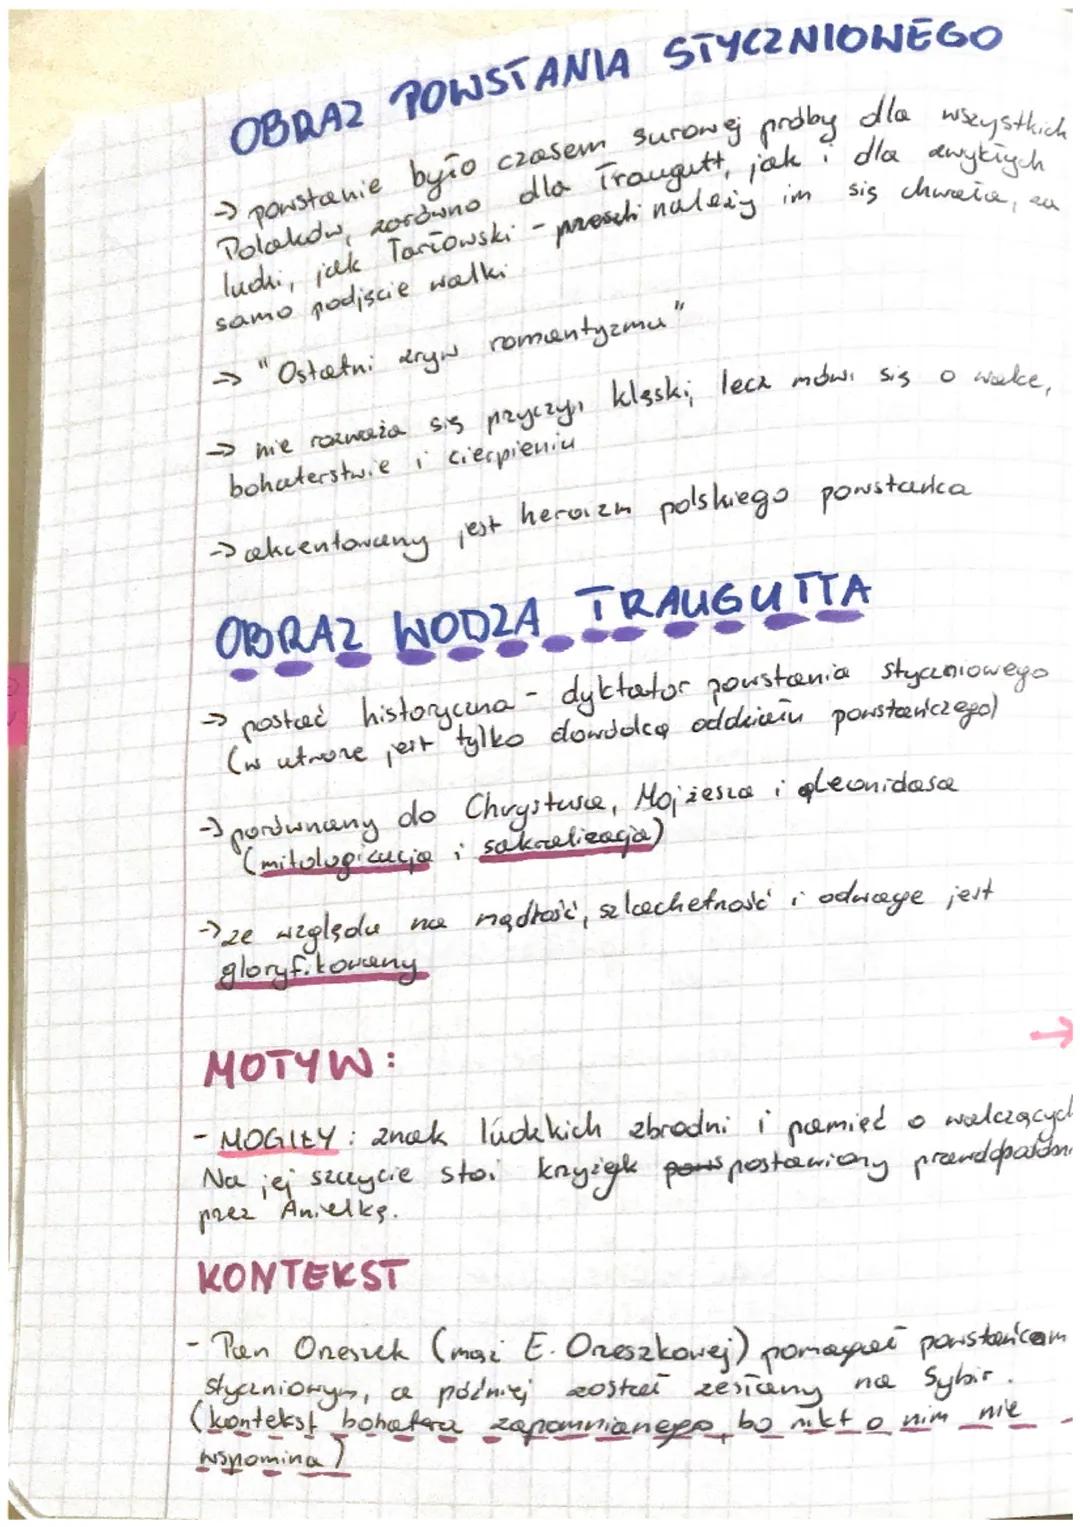 OBRAZ POWSTANIA STYCZNIOWEGO
→ powstanie było czasem surowej próby dla wszystkich
Polaków, zarówno dla Traugutt, jak i dla zwykłych
ludzi, jak Tarłowski - należy im się chwała, za
samo podjęcie walki
→ "Ostatni zryw romantyzmu"
→ nie rozważa się przyczyn klęski, lecz mówi się o walce,
bohaterstwie i cierpieniu
→ akcentowany jest heroizm polskiego powstańca
OBRAZ WODZA TRAUGUTTA
→ postać historyczna - dyktator powstania styczniowego
(w utworze jest tylko dowódcą oddziału powstańczego)
→ porównany do Chrystusa, Mojżesza i Leonidasa
(mitologizacja i sakralizacja)
→ ze względu na mądrość, szlachetność i odwagę jest
gloryfikowany
→
MOTYW:
- MOGIŁY: znak ludzkich zbrodni i pamięć o walczących
Na jej szczycie stoi krzyżyk postawiony
przez Anielkę.
KONTEKST
- Pan Orzeszek (mąż E. Orzeszkowej) pomagał powstańcom
styczniowym, a później został zesłany na Sybir.
(kontekst bohatera zapomnianego, bo nikt o nim nie
wspomina)